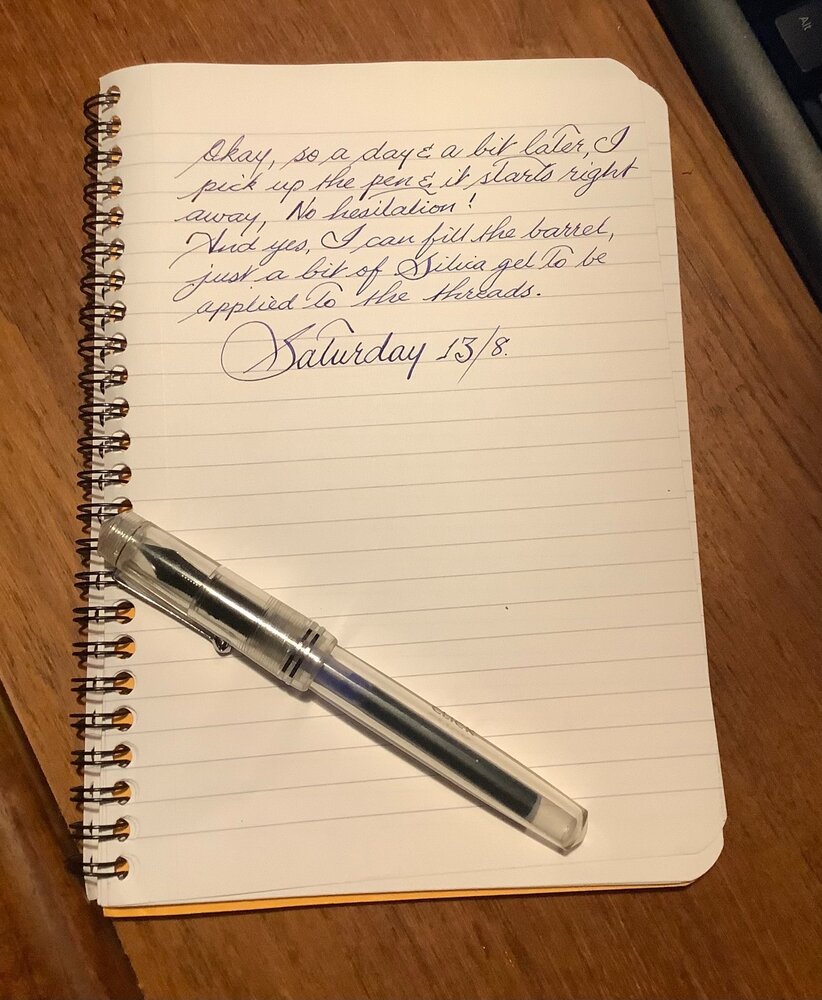 Okay, so a day & a bit later, I
pick up the pen & it starts right
away, No hesitation!
And yes, I can fill the barrel,
just a bit of Silica gel to be
applied to the threads.
Saturday 13/8.
Alt